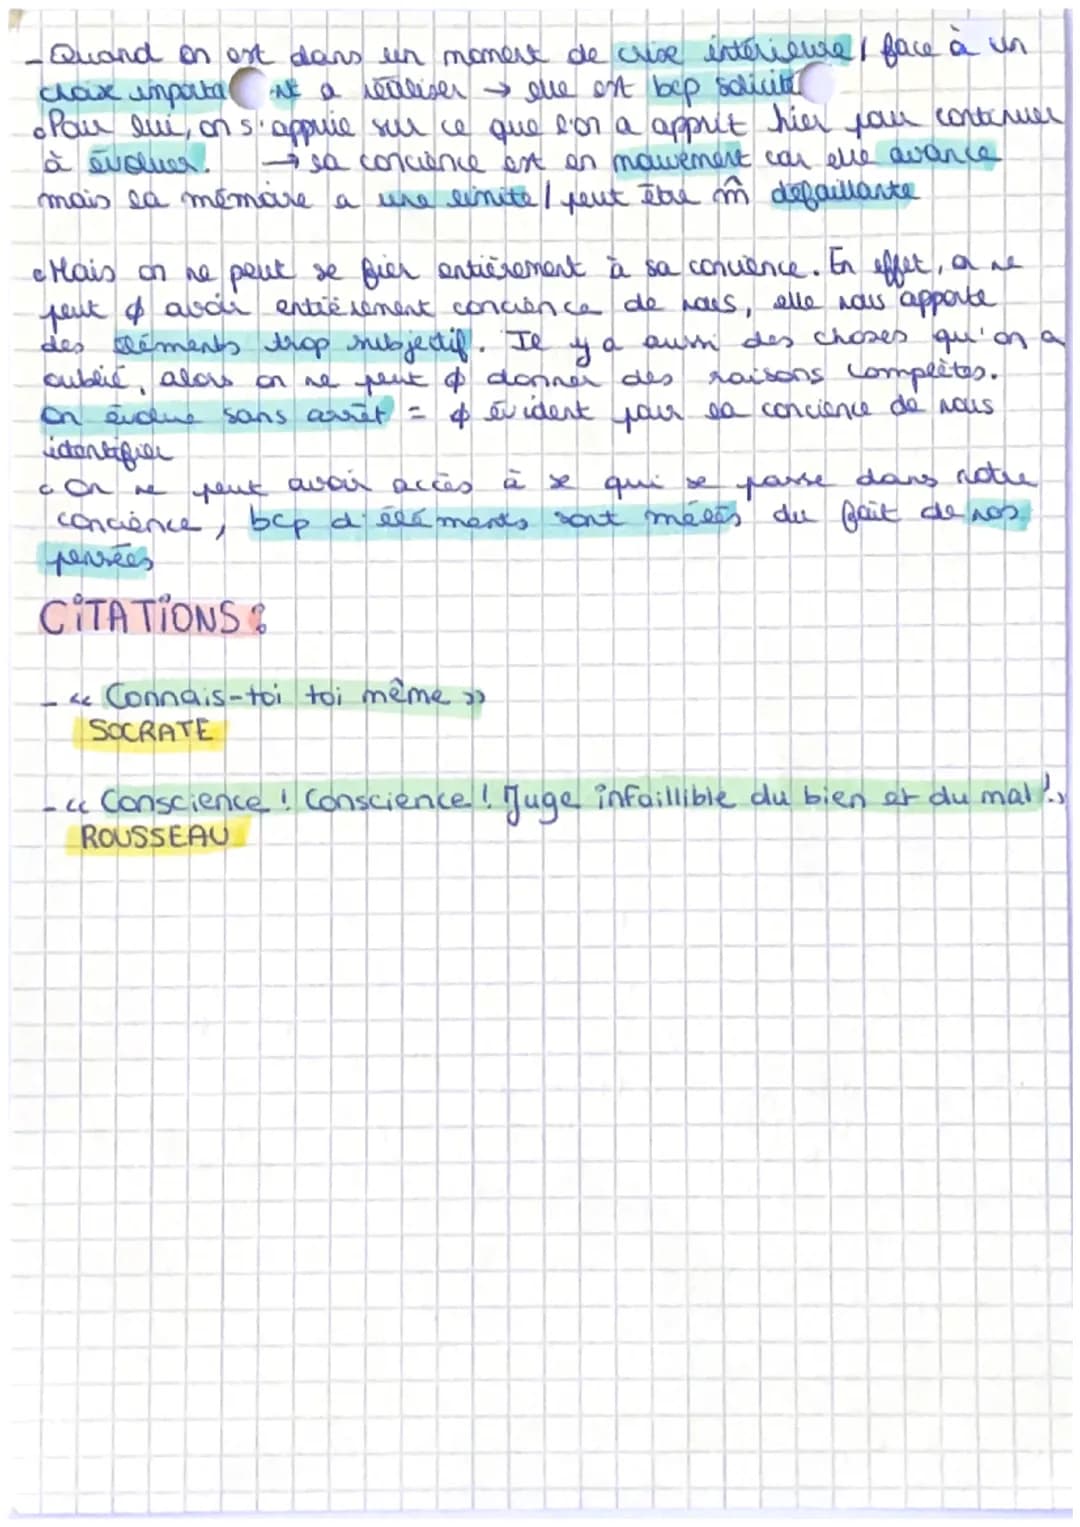 - Quand on est dans un moment de crise intérieure / face à un
choix importa nt a réaliser → elle est bcp solicité
• Pour lui, on s'appuie sur ce que l'on a apprit hier pour continuer
à évoluer. → sa concience est en mouvement car elle avance
mais la mémoire a une limite / peut être m̂ défaillante
• Mais on ne peut se fier entièrement à sa concience. En effet, on ne
peut ϕ avoir entièrement concience de nous, elle nous apporte
des éléments trop subjectif. Il y a aussi des choses qu'on a
oublié, alors on ne peut ϕ donner des raisons complètes.
On évolue sans arrêt = ϕ évident pour la concience de nous
identifier
• On ne peut avoir accès à se qui se passe dans notre
concience, bcp d'éléments sont mêlés du fait de nos
pensées
CITATIONS :
- « Connais-toi toi même »
SOCRATE
- « Conscience ! Conscience ! Juge infaillible du bien et du mal ! »
ROUSSEAU